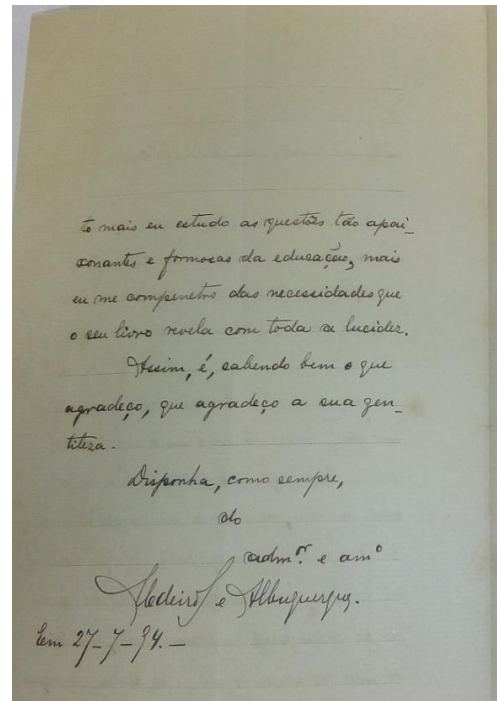 to mais eu estudo as questões tão apai_
xonantes e formosas da educação, mais
eu me compenetro das necessidades que
o seu livro revela com toda a lucidez.
Assim, é, sabendo bem o que
agradeço, que agradeço a sua gen_
tileza.
Disponha, como sempre,
do
admº.ʳ e amº
Medeiros e Albuquerque.
Em 27-7-94.—